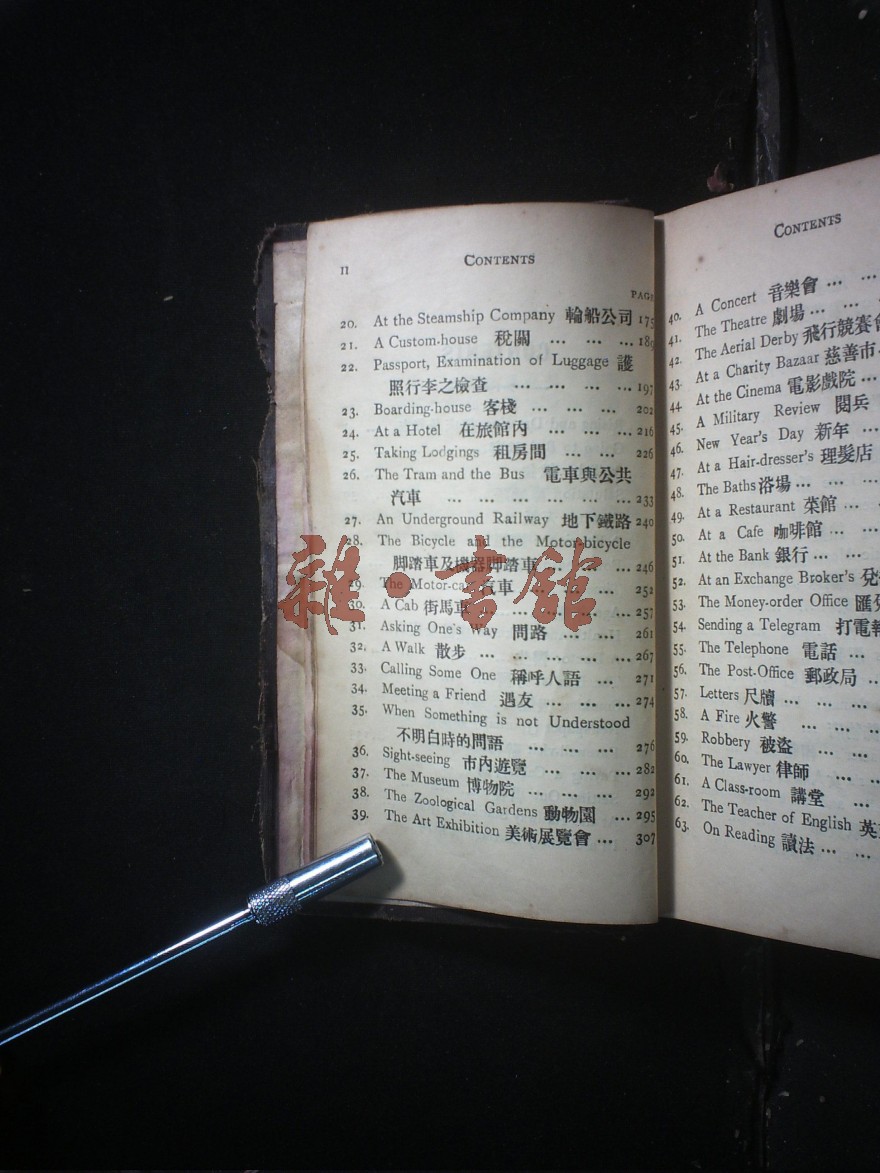 II
CONTENTS
PAGE
20. At the Steamship Company 輪船公司 175
21. A Custom-house 稅關 ... ... ... 189
22. Passport, Examination of Luggage 護
照行李之檢查 ... ... ... 197
23. Boarding-house 客棧 ... ... ... 202
24. At a Hotel 在旅館內 ... ... ... 216
25. Taking Lodgings 租房間 ... ... 226
26. The Tram and the Bus 電車與公共
汽車 ... ... ... ... ... ... 233
27. An Underground Railway 地下鐵路 240
28. The Bicycle and the Motor-bicycle
脚踏車及機器脚踏車 ... ... ... 246
29. The Motor-car 汽車 ... ... ... 252
30. A Cab 街馬車 ... ... ... ... 257
31. Asking One's Way 問路 ... ... 261
32. A Walk 散步 ... ... ... ... ... 267
33. Calling Some One 稱呼人語 ... 271
34. Meeting a Friend 遇友 ... ... ... 274
35. When Something is not Understood
不明白時的問語 ... ... ... 276
36. Sight-seeing 市內遊覽 ... ... ... 282
37. The Museum 博物院 ... ... ... 292
38. The Zoological Gardens 動物園 ... 295
39. The Art Exhibition 美術展覽會 ... 307
雜·書館
CONTENTS
40. A Concert 音樂會 ... ...
41. The Theatre 劇場 ... ... ...
42. The Aerial Derby 飛行競賽會
43. At a Charity Bazaar 慈善市
44. At the Cinema 電影戲院 ... ...
45. A Military Review 閱兵
46. New Year's Day 新年 ...
47. At a Hair-dresser's 理髮店
48. The Baths 浴場 ... ... ...
49. At a Restaurant 菜館 ... ...
50. At a Cafe 咖啡館 ... ...
51. At the Bank 銀行 ... ...
52. At an Exchange Broker's
53. The Money-order Office 匯
54. Sending a Telegram 打電報
55. The Telephone 電話 ... ...
56. The Post-Office 郵政局 ...
57. Letters 尺牘 ... ... ...
58. A Fire 火警 ... ... ...
59. Robbery 被盜 ... ...
60. The Lawyer 律師 ... ...
61. A Class-room 講堂 ...
62. The Teacher of English 英
63. On Reading 讀法 ... ...